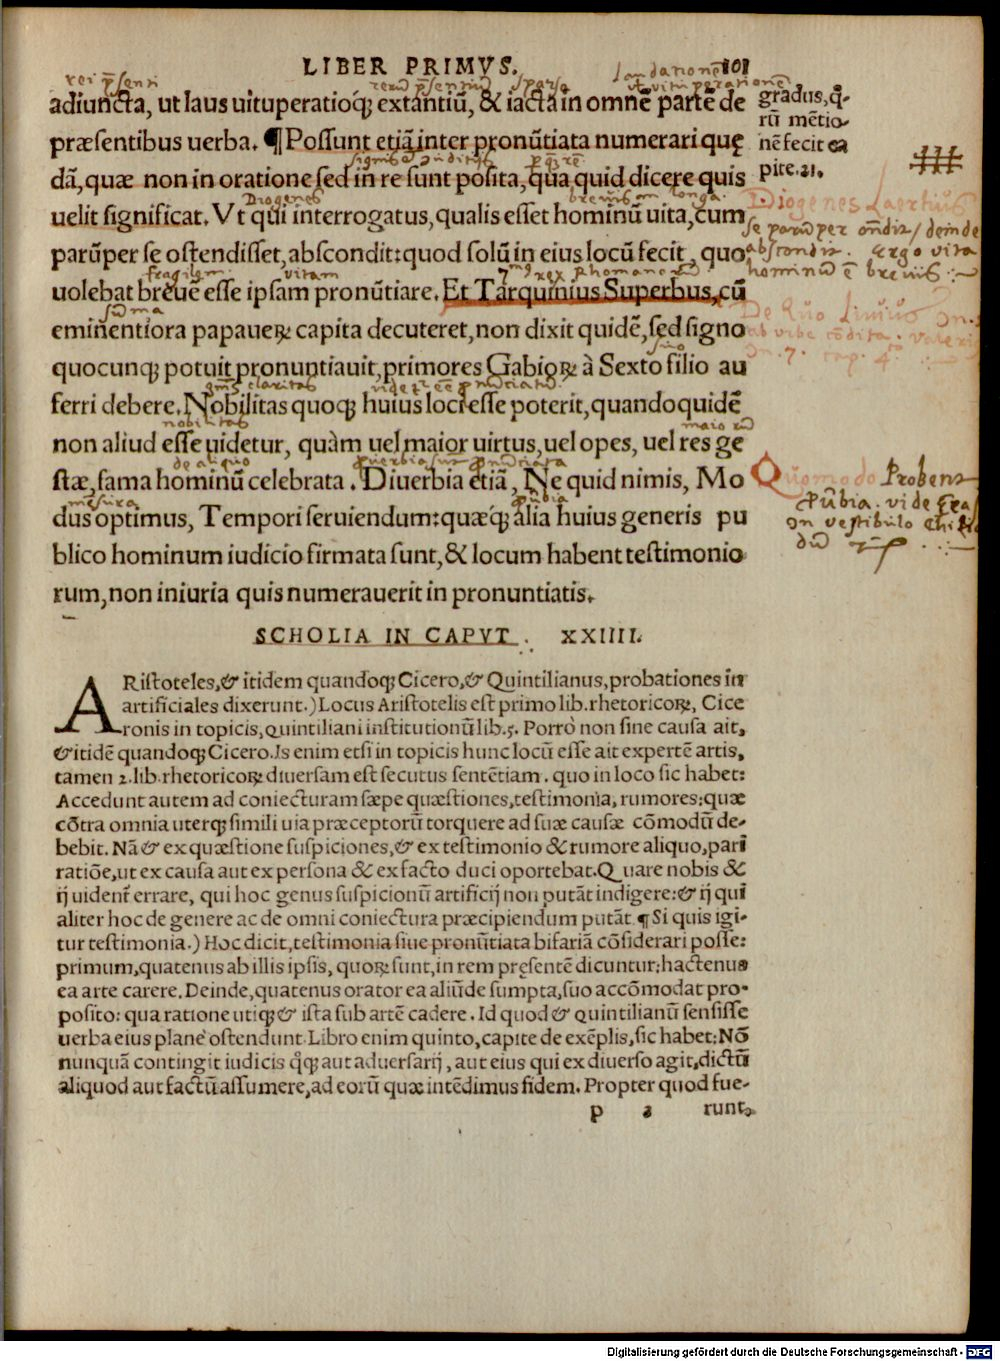 LIBER PRIMVS. 101
rei p̄senti
adiuncta, ut laus uituperatioq́; extantiū, & iacta in omnē partē de
præsentibus uerba. ¶ Possunt etiā inter pronūtiata numerari quę
dā, quæ non in oratione sed in re sunt posita, qua quid dicere quis
Diogenes
uelit significat. Vt qui interrogatus, qualis esset hominū uita, cum
parūper se ostendisset, abscondit: quod solū in eius locū fecit, quo
fragilem vitam
uolebat breuē esse ipsam pronūtiare. Et Tarquinius Superbus, cū
eminentiora papaueꝝ capita decuteret, non dixit quidē, sed signo
quocunq; potuit pronuntiauit, primores Gabioꝝ à Sexto filio au
ferri debere. Nobilitas quoq; huius loci esse poterit, quandoquidē
nobilitas
non aliud esse uidetur, quàm uel maior uirtus, uel opes, uel res ge
de aliquo
stæ, fama hominū celebrata. Diuerbia etiā, Ne quid nimis, Mo
mesura
dus optimus, Tempori seruiendum: quæq́; alia huius generis pu
blico hominum iudicio firmata sunt, & locum habent testimonio
rum, non iniuria quis numerauerit in pronuntiatis.
gradus, q̄-
rū mētio-
nē fecit ca
pite. 21.
Diogenes Laertius
se parūper
abscondit. Ergo vita
hominū ē brevis
De quo Livius
Quomodo Probent
SCHOLIA IN CAPVT. XXIIII.
ARistoteles, & itidem quandoq; Cicero, & Quintilianus, probationes in
artificiales dixerunt.) Locus Aristotelis est primo lib. rhetoricoꝝ, Cice
ronis in topicis, quintiliani institutionū lib. 5. Porrò non sine causa ait,
& itidē quandoq; Cicero. Is enim etsi in topicis hunc locū esse ait expertē artis,
tamen 2. lib. rhetoricoꝝ diuersam est secutus sentētiam. quo in loco sic habet:
Accedunt autem ad coniecturam sæpe quæstiones, testimonia, rumores: quæ
cōtra omnia uterq; simili uia præceptorū torquere ad suæ causæ cōmodū de-
bebit. Nā & ex quæstione suspiciones, & ex testimonio & rumore aliquo, pari
ratiōe, ut ex causa aut ex persona & ex facto duci oportebat. Quare nobis &
ij uident̄ errare, qui hoc genus suspicionū artificij non putāt indigere: & ij qui
aliter hoc de genere ac de omni coniectura præcipiendum putāt. ¶ Si quis igi-
tur testimonia.) Hoc dicit, testimonia siue pronūtiata bifariā cōsiderari posse:
primum, quatenus ab illis ipsis, quoꝝ sunt, in rem pręsentē dicuntur: hactenus
ea arte carere. Deinde, quatenus orator ea aliūde sumpta, suo accōmodat pro-
posito: qua ratione utiq; & ista sub artē cadere. Id quod & quintilianū sensisse
uerba eius planè ostendunt. Libro enim quinto, capite de exēplis, sic habet: Nō
nunquā contingit iudicis q̄q; aut aduersarij, aut eius qui ex diuerso agit, dictū
aliquod aut factū assumere, ad eorū quæ intēdimus fidem. Propter quod fue-
p 2 runt
Digitalisierung gefördert durch die Deutsche Forschungsgemeinschaft - DFG